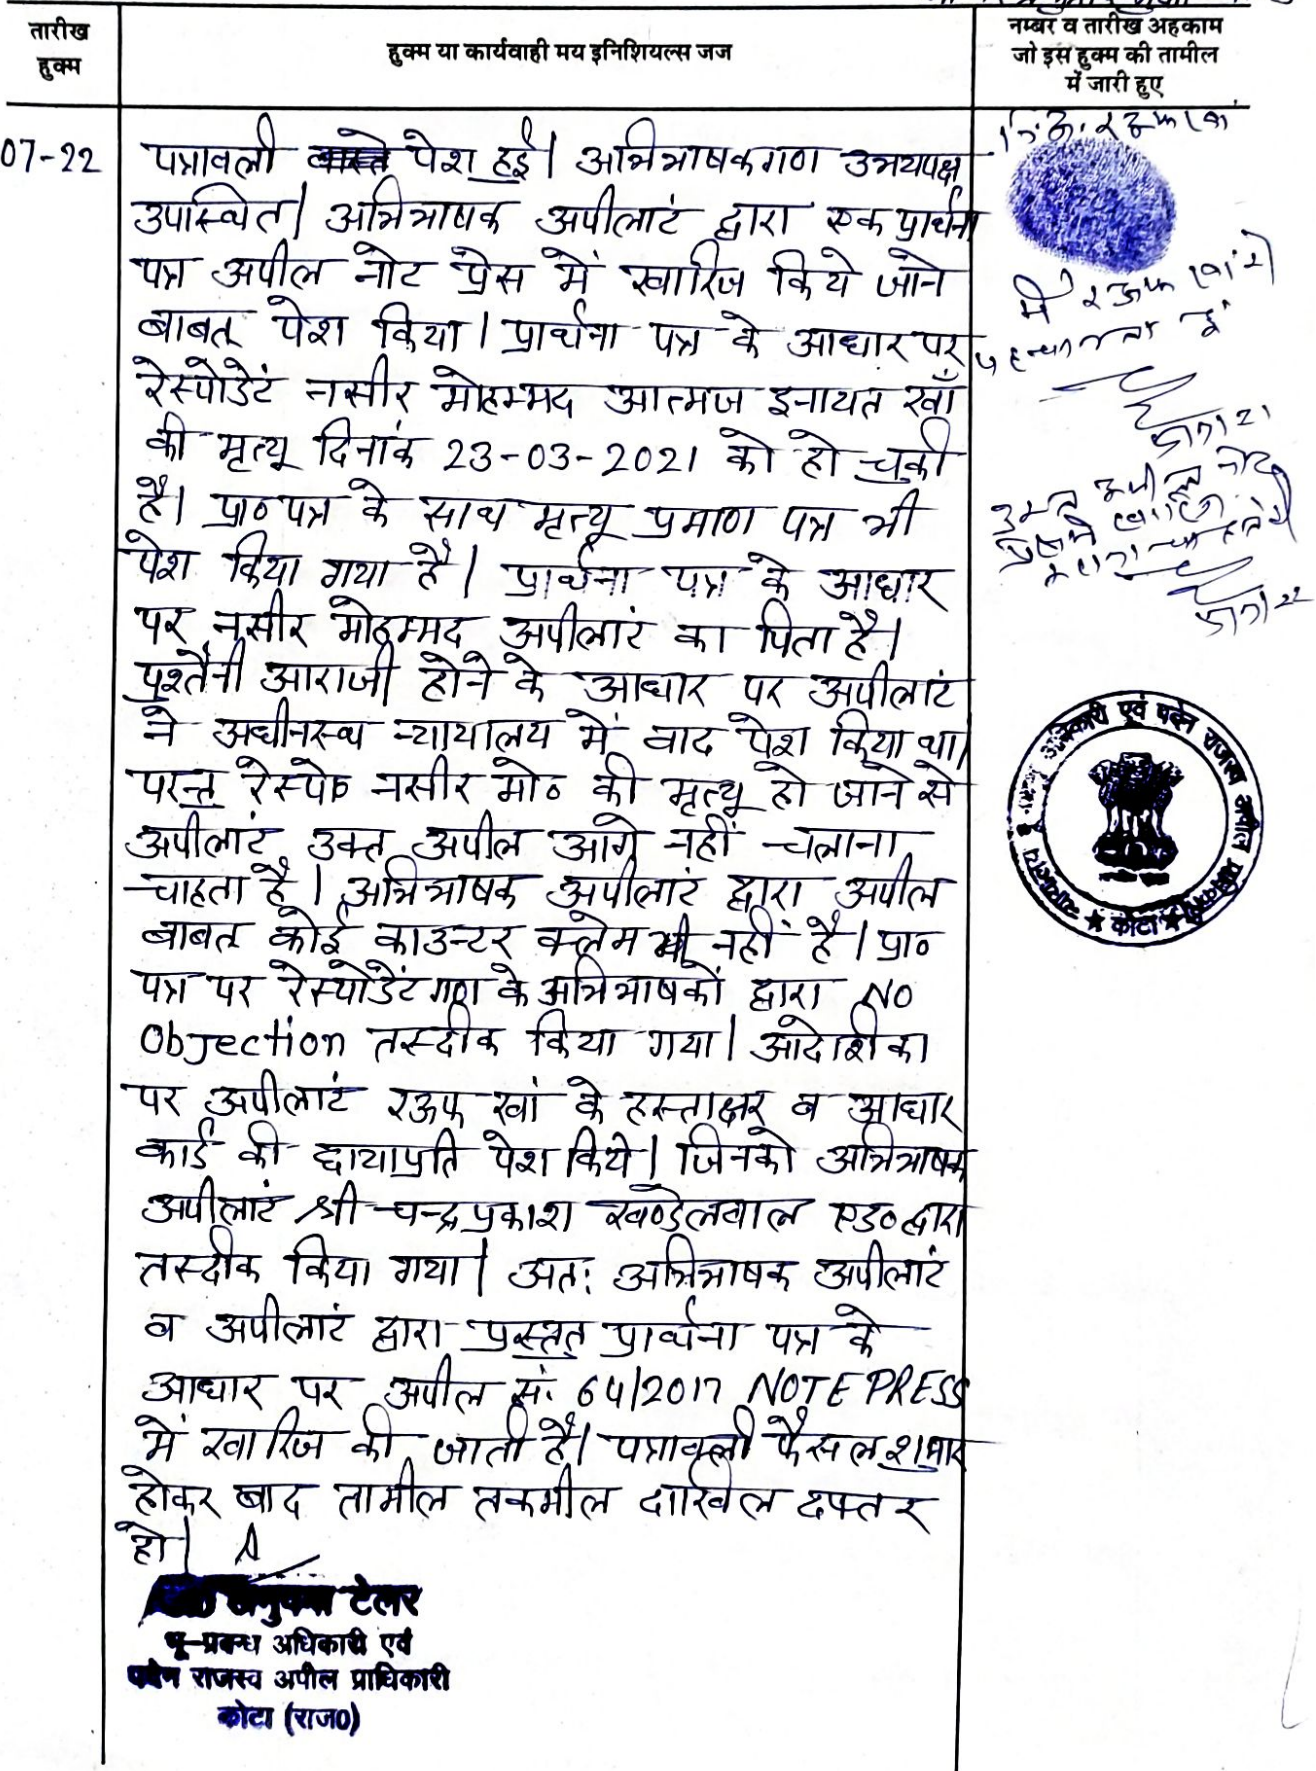 तारीख
हुक्म
हुक्म या कार्यवाही मय इनिशियल्स जज
नम्बर व तारीख अहकाम
जो इस हुक्म की तामील
में जारी हुए
07-22
पत्रावली वास्ते पेश हुई। अभिभाषकगण उभयपक्ष
उपस्थित। अभिभाषक अपीलांट द्वारा एक प्रार्थना
पत्र अपील नोट प्रेस में खारिज किये जाने
बाबत् पेश किया। प्रार्थना पत्र के आधार पर
रेस्पोडेंट नसीर मोहम्मद आत्मज इनायत खाँ
की मृत्यू दिनांक 23-03-2021 को हो चुकी
है। प्रा० पत्र के साथ मृत्यू प्रमाण पत्र भी
पेश किया गया है। प्रार्थना पत्र के आधार
पर नसीर मोहम्मद अपीलांट का पिता है।
पुश्तैनी आराजी होने के आधार पर अपीलांट
ने अधीनस्थ न्यायालय में वाद पेश किया था।
परन्तु रेस्पो० नसीर मो० की मृत्यू हो जाने से
अपीलांट उक्त अपील आगे नहीं चलाना
चाहता है। अभिभाषक अपीलांट द्वारा अपील
बाबत कोई काउन्टर क्लेम भी नहीं है। प्रा०
पत्र पर रेस्पोडेंटगण के अभिभाषकों द्वारा NO
Objection तस्दीक किया गया। आदेशिका
पर अपीलांट रऊफ खां के हस्ताक्षर व आधार
कार्ड की छायाप्रति पेश किये। जिनको अभिभाषक
अपीलांट श्री चन्द्रप्रकाश खण्डेलवाल एड० द्वारा
तस्दीक किया गया। अत: अभिभाषक अपीलांट
व अपीलांट द्वारा प्रस्तुत प्रार्थना पत्र के
आधार पर अपील सं. 64/2017 NOTE PRESS
में खारिज की जाती है। पत्रावली फैसल शुमार
होकर बाद तामील तकमील दाखिल दफ्तर
हो।
टेलर
भू-प्रबन्ध अधिकारी एवं
पदेन राजस्व अपील प्राधिकारी
कोटा (राज0)
मैं रऊफ खां को
पहचानता हूं
उक्त अपील नोट
अधिकारी एवं पदेन राजस्व अपील प्राधिकारी
★ कोटा ★